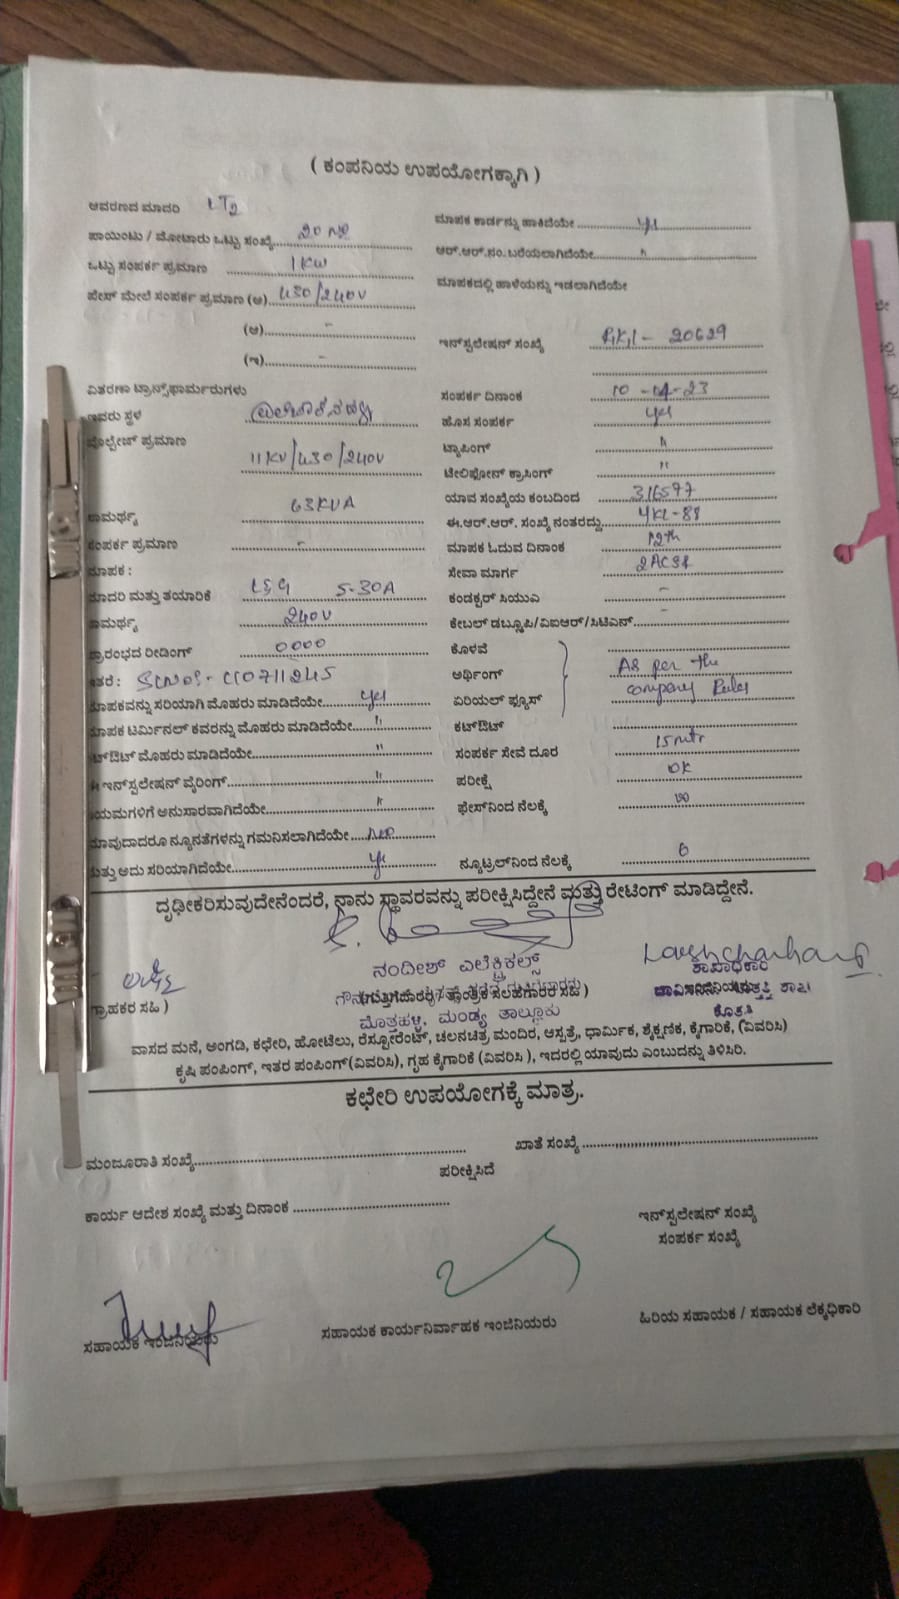 ( ಕಂಪನಿಯ ಉಪಯೋಗಕ್ಕಾಗಿ )
ಆವರಣದ ಮಾದರಿ LT2
ಪಾಯಿಂಟು / ಮೋಟಾರು ಒಟ್ಟು ಸಂಖ್ಯೆ 20
ಒಟ್ಟು ಸಂಪರ್ಕ ಪ್ರಮಾಣ 1KW
ಫೇಸ್ ಮೇಲೆ ಸಂಪರ್ಕ ಪ್ರಮಾಣ (ಅ) 430/240V
(ಆ) -
(ಇ) -
ವಿತರಣಾ ಟ್ರಾನ್ಸ್‌ಫಾರ್ಮರುಗಳು
ಇವರು ಸ್ಥಳ
ವೊಲ್ಟೇಜ್ ಪ್ರಮಾಣ
11KV/430/240V
ಸಾಮರ್ಥ್ಯ 63KVA
ಸಂಪರ್ಕ ಪ್ರಮಾಣ -
ಮಾಪಕ :
ಮಾದರಿ ಮತ್ತು ತಯಾರಿಕೆ L&G 5-30A
ಸಾಮರ್ಥ್ಯ 240V
ಪ್ರಾರಂಭದ ರೀಡಿಂಗ್ 0000
ಇತರೆ :
ಮಾಪಕವನ್ನು ಸರಿಯಾಗಿ ಮೊಹರು ಮಾಡಿದೆಯೇ yes
ಮಾಪಕ ಟರ್ಮಿನಲ್ ಕವರನ್ನು ಮೊಹರು ಮಾಡಿದೆಯೇ "
ಕಟ್‌ಔಟ್ ಮೊಹರು ಮಾಡಿದೆಯೇ "
ಈ ಇನ್‌ಸ್ಪಲೇಷನ್ ವೈರಿಂಗ್ "
ನಿಯಮಗಳಿಗೆ ಅನುಸಾರವಾಗಿದೆಯೇ "
ಯಾವುದಾದರೂ ನ್ಯೂನತೆಗಳನ್ನು ಗಮನಿಸಲಾಗಿದೆಯೇ
ಮತ್ತು ಅದು ಸರಿಯಾಗಿದೆಯೇ yes
ಮಾಪಕ ಕಾರ್ಡನ್ನು ಹಾಕಿದೆಯೇ yes
ಆರ್.ಆರ್.ನಂ. ಬರೆಯಲಾಗಿದೆಯೇ "
ಮಾಪಕದಲ್ಲಿ ಹಾಳೆಯನ್ನು ಇಡಲಾಗಿದೆಯೇ
ಇನ್‌ಸ್ಪಲೇಷನ್ ಸಂಖ್ಯೆ 20629
ಸಂಪರ್ಕ ದಿನಾಂಕ 10-04-23
ಹೊಸ ಸಂಪರ್ಕ yes
ಟ್ಯಾಪಿಂಗ್ "
ಟೆಲಿಫೋನ್ ಕ್ರಾಸಿಂಗ್ "
ಯಾವ ಸಂಖ್ಯೆಯ ಕಂಬದಿಂದ 316577
ಈ.ಆರ್.ಆರ್. ಸಂಖ್ಯೆ ನಂತರದ್ದು
ಮಾಪಕ ಓದುವ ದಿನಾಂಕ 12th
ಸೇವಾ ಮಾರ್ಗ 2ACSR
ಕಂಡಕ್ಟರ್ ಸಿಯುಎ -
ಕೇಬಲ್ ಡಬ್ಲ್ಯೂಪಿ/ವಿಐಆರ್/ಸಿಟಿಎನ್ -
ಕೊಳವೆ
ಅರ್ಥಿಂಗ್ As per the
ಏರಿಯಲ್ ಫ್ಯೂಸ್ company Rules
ಕಟ್‌ಔಟ್
ಸಂಪರ್ಕ ಸೇವೆ ದೂರ 15mtr
ಪರೀಕ್ಷೆ OK
ಫೇಸ್‌ನಿಂದ ನೆಲಕ್ಕೆ
ನ್ಯೂಟ್ರಲ್‌ನಿಂದ ನೆಲಕ್ಕೆ 0
ದೃಢೀಕರಿಸುವುದೇನೆಂದರೆ, ನಾನು ಸ್ಥಾವರವನ್ನು ಪರೀಕ್ಷಿಸಿದ್ದೇನೆ ಮತ್ತು ರೇಟಿಂಗ್ ಮಾಡಿದ್ದೇನೆ.
ನಂದೀಶ್ ಎಲೆಕ್ಟ್ರಿಕಲ್ಸ್
ಶಾಖಾಧಿಕಾರಿ
ಗ್ರಾಹಕರ ಸಹಿ )
(ಗುತ್ತಿಗೆದಾರರ / ತಾಂತ್ರಿಕ ಸಲಹಗಾರರ ಸಹಿ )
ಮಂಡ್ಯ ತಾಲ್ಲೂಕು
ಕೊತ್ತತ್ತಿ
ವಾಸದ ಮನೆ, ಅಂಗಡಿ, ಕಛೇರಿ, ಹೋಟೆಲು, ರೆಸ್ಟೋರೆಂಟ್, ಚಲನಚಿತ್ರ ಮಂದಿರ, ಆಸ್ಪತ್ರೆ, ಧಾರ್ಮಿಕ, ಶೈಕ್ಷಣಿಕ, ಕೈಗಾರಿಕೆ, (ವಿವರಿಸಿ)
ಕೃಷಿ ಪಂಪಿಂಗ್, ಇತರ ಪಂಪಿಂಗ್(ವಿವರಿಸಿ), ಗೃಹ ಕೈಗಾರಿಕೆ (ವಿವರಿಸಿ ), ಇದರಲ್ಲಿ ಯಾವುದು ಎಂಬುದನ್ನು ತಿಳಿಸಿರಿ.
ಕಛೇರಿ ಉಪಯೋಗಕ್ಕೆ ಮಾತ್ರ.
ಮಂಜೂರಾತಿ ಸಂಖ್ಯೆ ಖಾತೆ ಸಂಖ್ಯೆ
ಪರೀಕ್ಷಿಸಿದೆ
ಕಾರ್ಯ ಆದೇಶ ಸಂಖ್ಯೆ ಮತ್ತು ದಿನಾಂಕ
ಇನ್‌ಸ್ಪಲೇಷನ್ ಸಂಖ್ಯೆ
ಸಂಪರ್ಕ ಸಂಖ್ಯೆ
ಸಹಾಯಕ ಇಂಜಿನಿಯರು ಸಹಾಯಕ ಕಾರ್ಯನಿರ್ವಾಹಕ ಇಂಜಿನಿಯರು ಹಿರಿಯ ಸಹಾಯಕ / ಸಹಾಯಕ ಲೆಕ್ಕಧಿಕಾರಿ